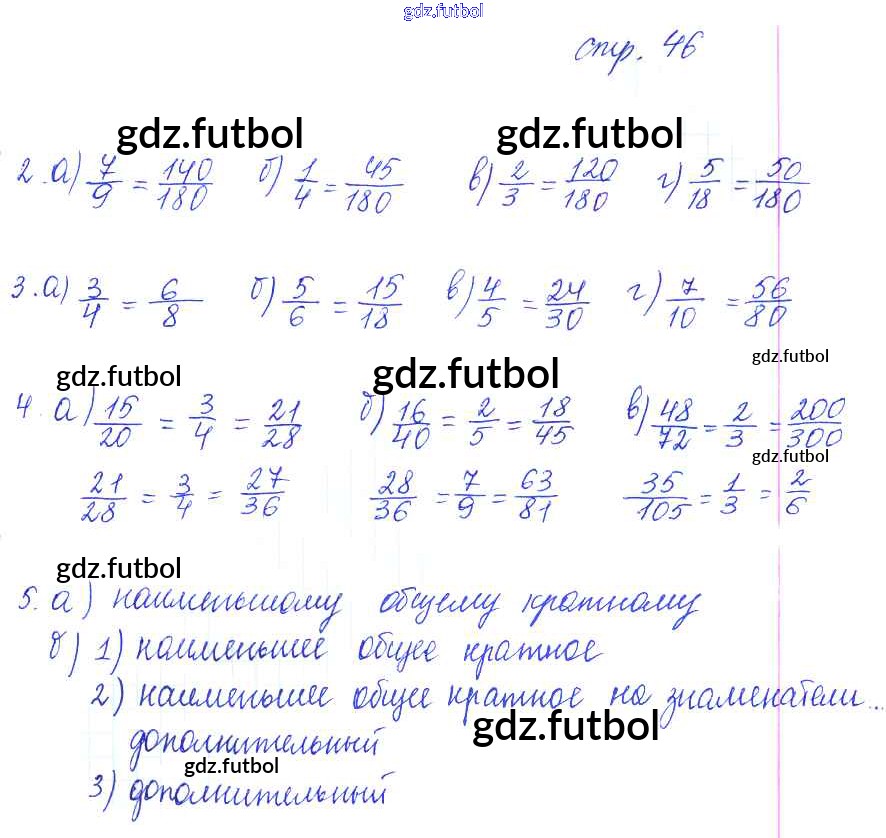 gdz.futbol
стр. 46
gdz.futbol gdz.futbol
2. а) 7/9 = 140/180 б) 1/4 = 45/180 в) 2/3 = 120/180 г) 5/18 = 50/180
3. а) 3/4 = 6/8 б) 5/6 = 15/18 в) 4/5 = 24/30 г) 7/10 = 56/80
gdz.futbol gdz.futbol gdz.futbol
4. а) 15/20 = 3/4 = 21/28 б) 16/40 = 2/5 = 18/45 в) 48/72 = 2/3 = 200/300
gdz.futbol
21/28 = 3/4 = 27/36 28/36 = 7/9 = 63/81 35/105 = 1/3 = 2/6
gdz.futbol
5. а) наименьшому общему кратному
б) 1) наименьшее общее кратное
2) наименьшее общее кратное на знаменатели...
gdz.futbol
дополнительный
gdz.futbol
3) дополнительный